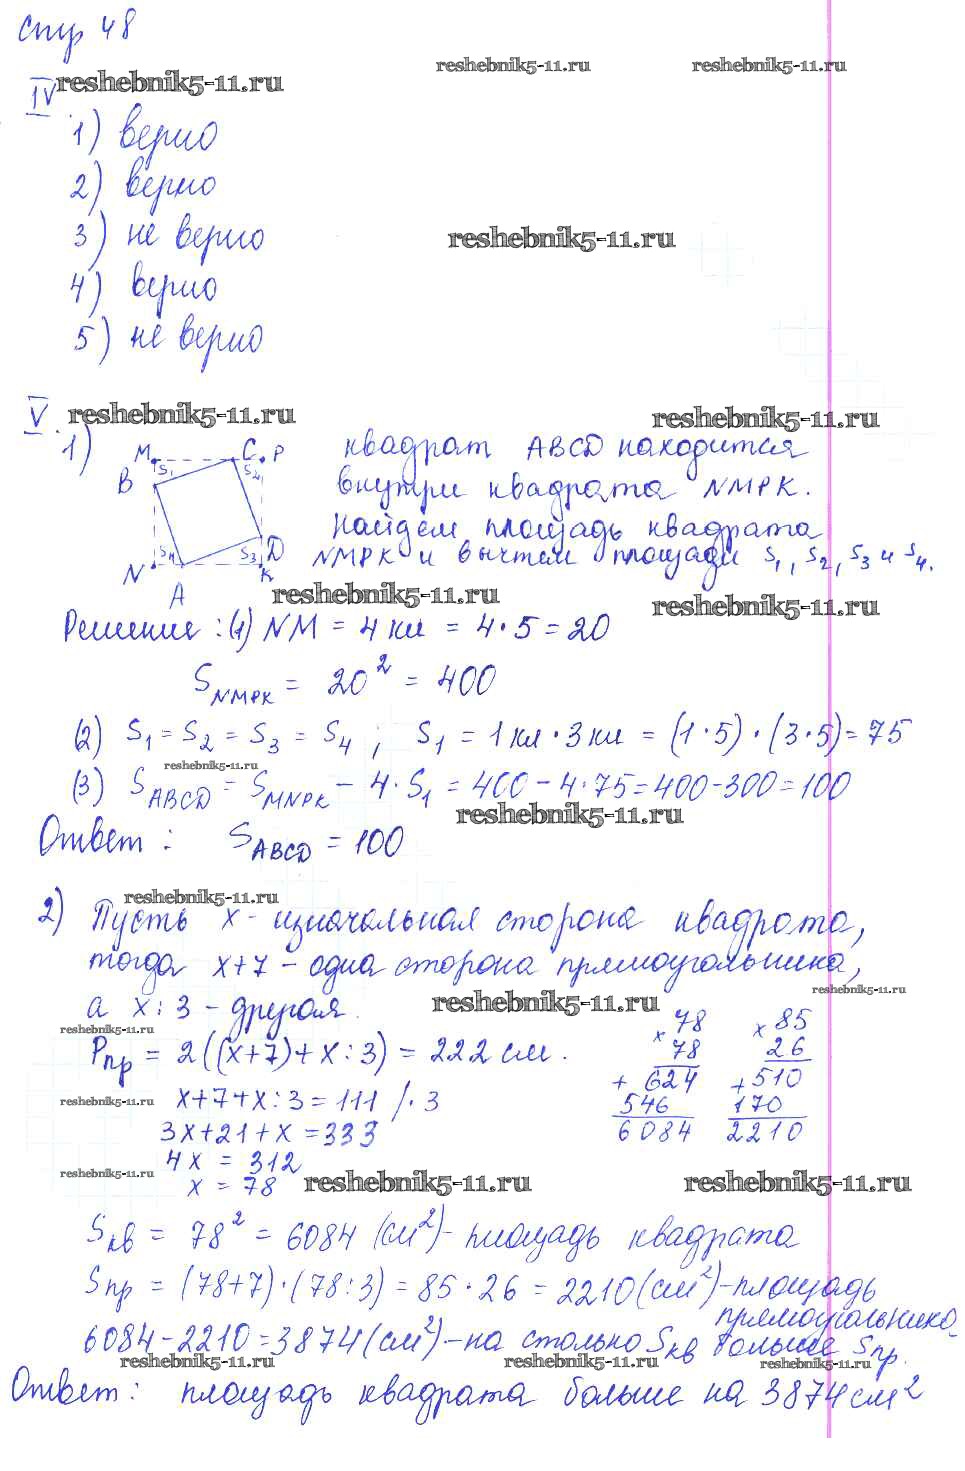 стр 48
reshebnik5-11.ru reshebnik5-11.ru
IV. reshebnik5-11.ru
1) верно
2) верно
3) не верно
reshebnik5-11.ru
4) верно
5) не верно
V. reshebnik5-11.ru reshebnik5-11.ru
1) M C P квадрат ABCD находится
S1 S2
B внутри квадрата NMPK.
Найдём площадь квадрата
S4 S3 D NMPK и вычтем площади S1, S2, S3 и S4.
N K
A reshebnik5-11.ru reshebnik5-11.ru
Решение: (1) NM = 4 кл = 4·5=20
S NMPK = 20² = 400
(2) S1 = S2 = S3 = S4 ; S1 = 1 кл · 3 кл = (1·5)·(3·5)=75
reshebnik5-11.ru
(3) S ABCD = S MNPK − 4·S1 = 400−4·75=400−300=100
reshebnik5-11.ru
Ответ: S ABCD = 100
reshebnik5-11.ru
2) Пусть x - изначальная сторона квадрата,
тогда x+7 - одна сторона прямоугольника,
reshebnik5-11.ru
а x:3 - другая. reshebnik5-11.ru
reshebnik5-11.ru
Pпр = 2((x+7)+x:3) = 222 см.
x+7+x:3=111 /·3
reshebnik5-11.ru
3x+21+x=333
4x = 312
reshebnik5-11.ru
x = 78
× 78
78
+ 624
546
6084
× 85
26
+ 510
170
2210
reshebnik5-11.ru reshebnik5-11.ru
Sкв = 78² = 6084 (см²)- площадь квадрата
Sпр = (78+7)·(78:3)=85·26=2210(см²)-площадь
прямоугольника
6084−2210=3874(см²)-на столько Sкв больше Sпр.
reshebnik5-11.ru reshebnik5-11.ru reshebnik5-11.ru
Ответ: площадь квадрата больше на 3874см²